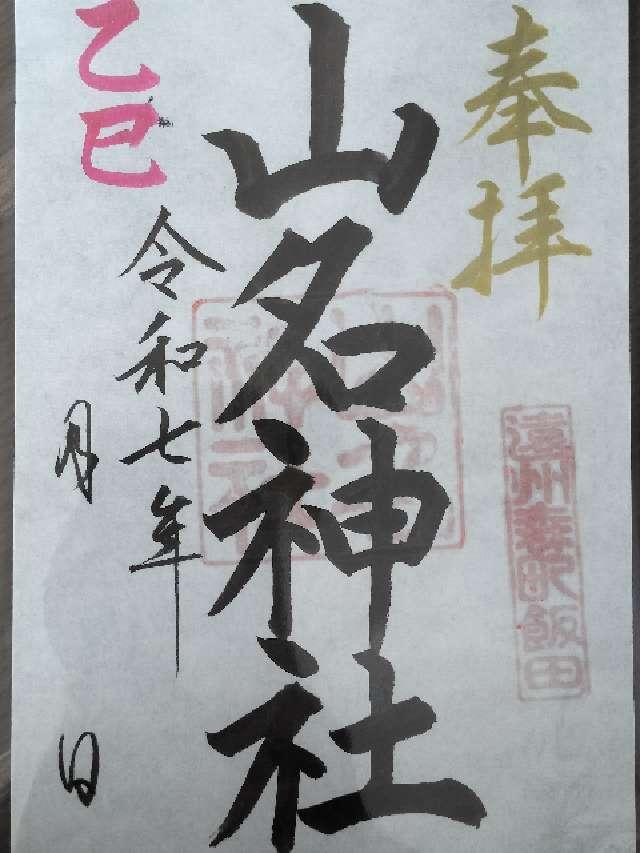 奉拝
遠州森町飯田
山名神社
乙巳
令和七年
月 日